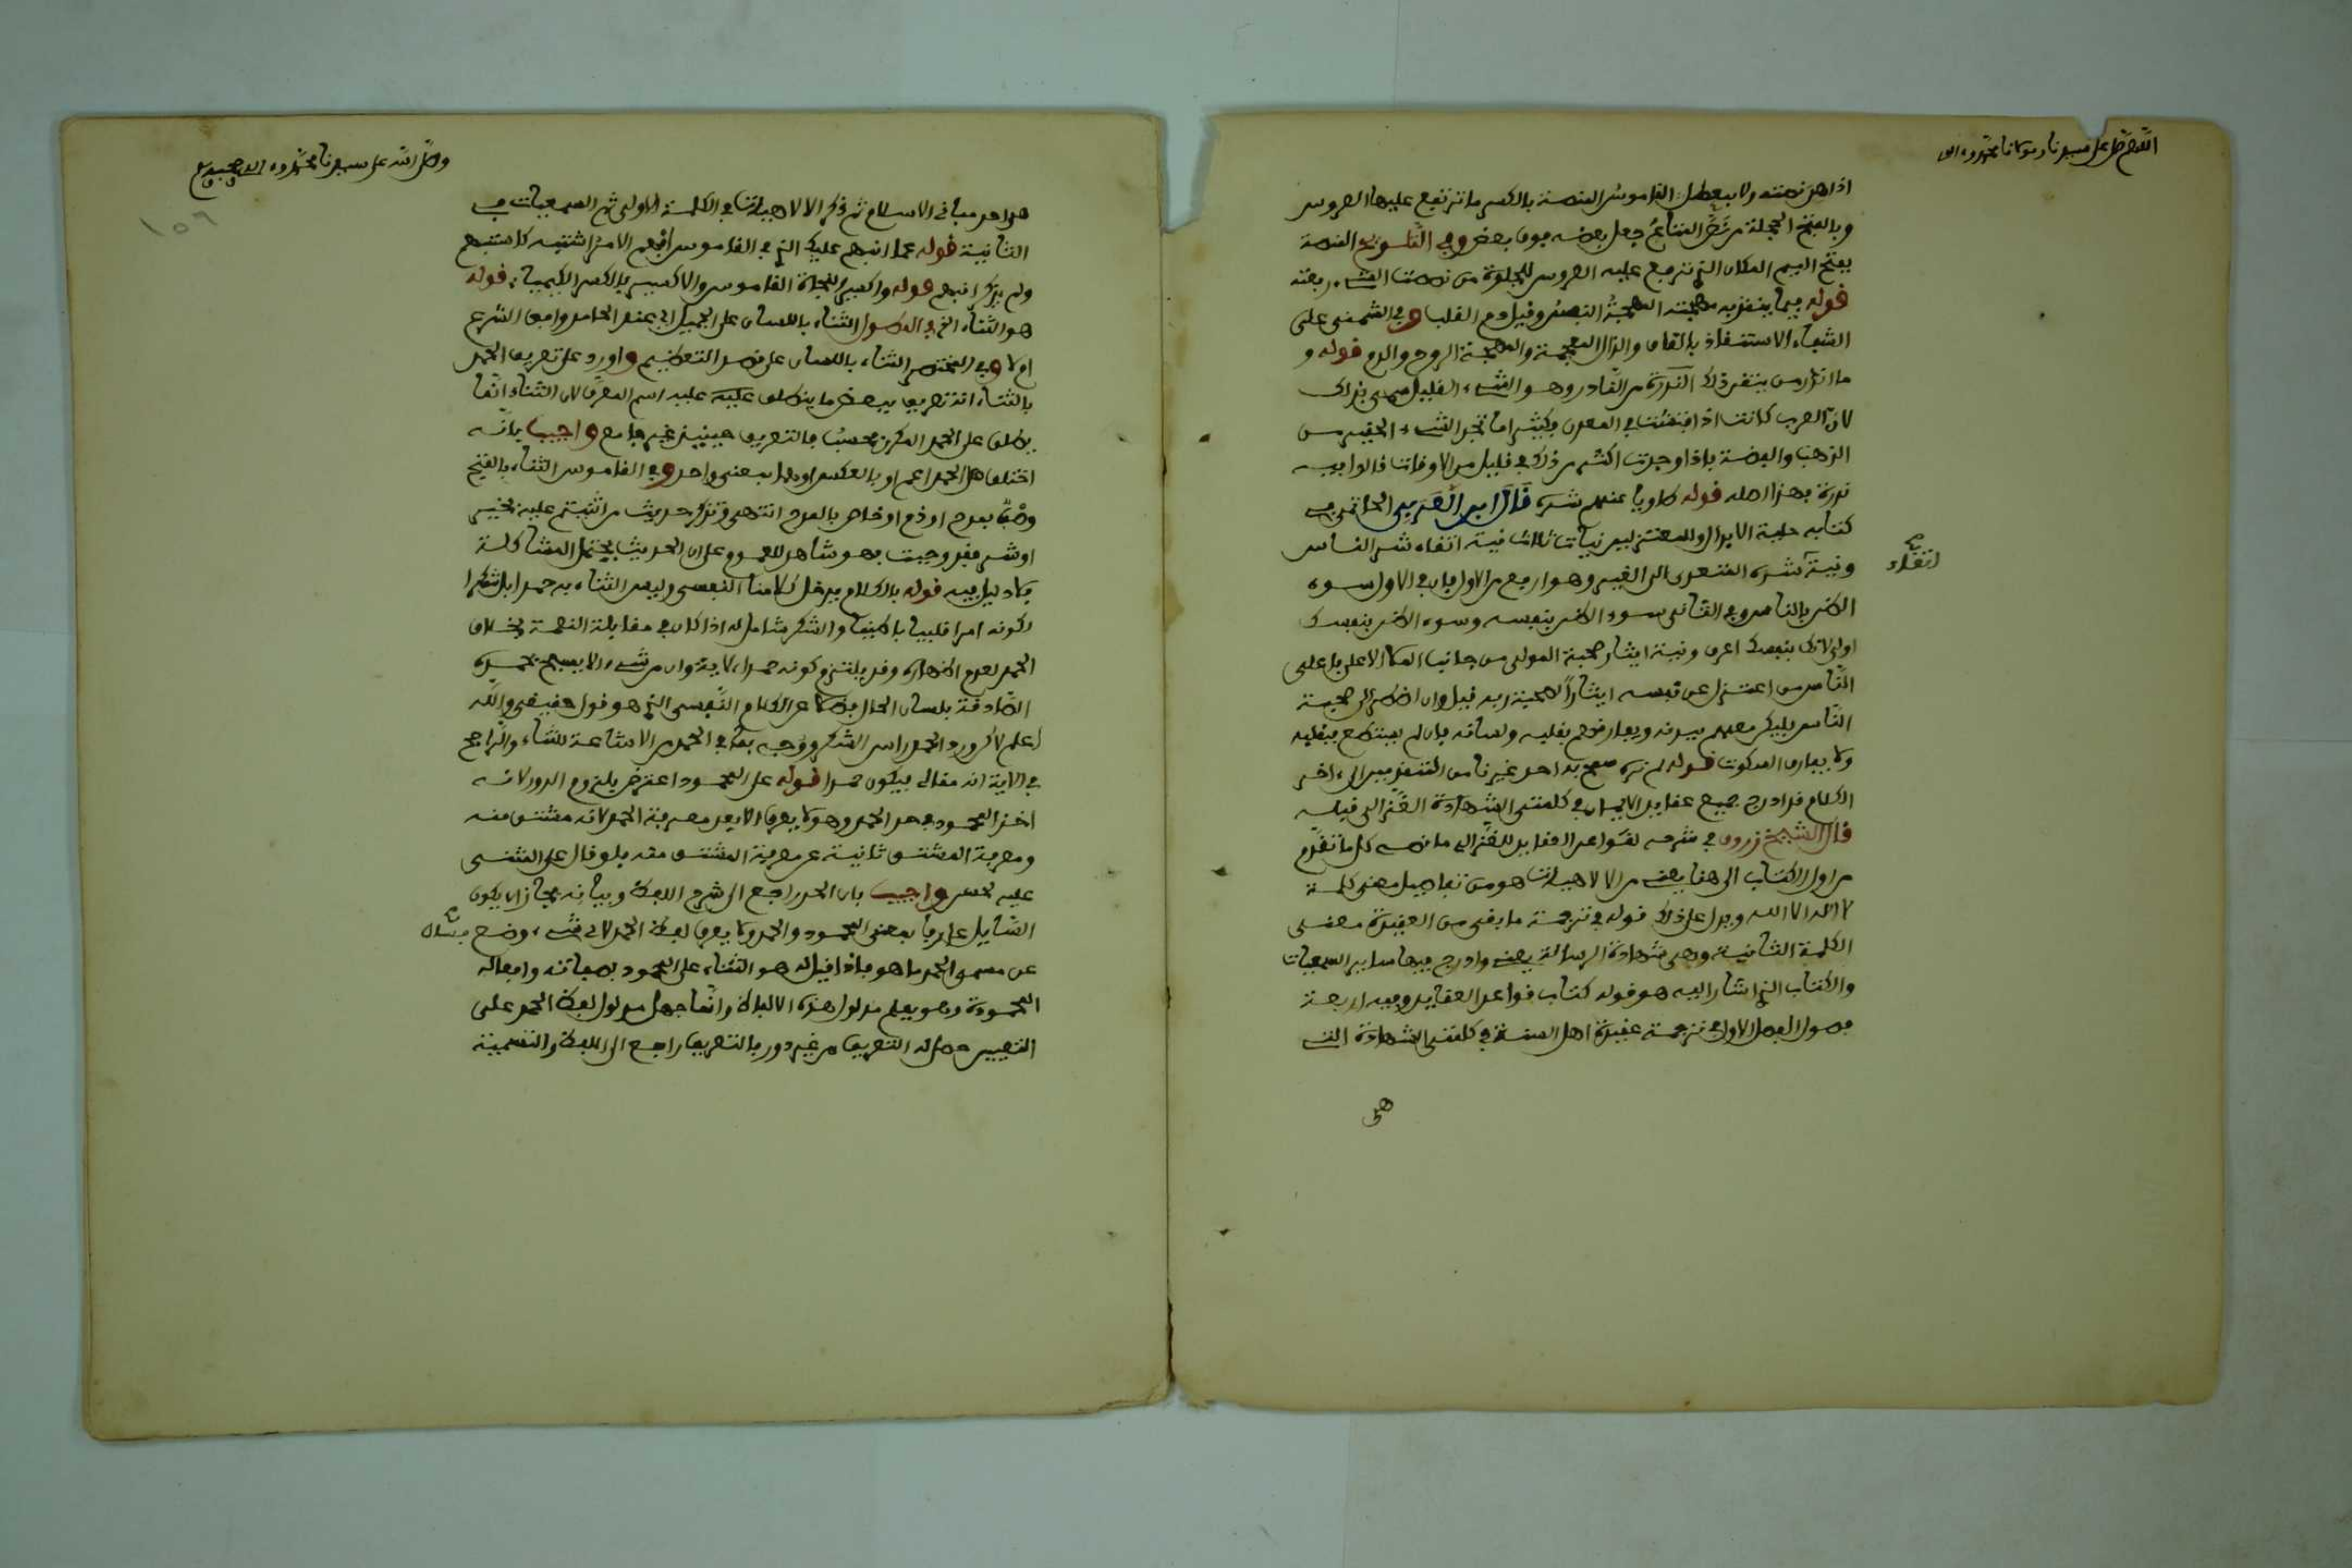 اللهم صل على سيدنا ومولانا محمد وءاله
اذا هي نصته ولا بيعطل القاموس المنصة بالكسر ما ترتفع عليها العروس
وبالفتح الحجلة من نص المتاع جعل بعضه فوق بعض وفي التلويح المنصة
بفتح الميم المكان الذي ترفع عليه العروس للجلوة من نصصت الشيء رفعته
قوله فيما ينقذ به مهجته المهجة النفس وقيل دم القلب وفي الشمني على
الشفاء الاستنقاذ بالقاف والذال المعجمة والمهجة الروح والدم قوله و
ما اندر من يتقن ذلك الندرة من النادر وهو الشيء القليل سمي بذلك
لان العرب كانت اذا فتشت في المعدن فكثيرا ما تجد الشيء الحقير من
الذهب والفضة فاذا وجدت اكثر من ذلك في قليل من الاوقات قالوا فيه
ندرة بهذا اصله قوله كاويا عنهم شره قال ابن العربي الحاتمي في
كتابه حلية الابدال وللمعتزلين نيات ثلاث نية اتقاء شر الناس
ونية اتقاء شره المتعدي الى الغير وهو ارفع من الاول فان في الاول سوء
الظن بالناس وفي الثاني سوء الظن بنفسه وسوء الظن بنفسك
اولى لانك بنفسك اعرف ونية ايثار صحبة المولى من جانب الملا الاعلى فاعلى
الناس من اعتزل عن نفسه ايثارا لصحبة ربه قيل وان اضطر الى صحبة
الناس فليكن معهم ببدنه ويفارقهم بقلبه ولسانه فان لم يستطع فبقلبه
ولا يفارق السكوت قوله لم نره سمح به احد غيرنا من المتقدمين الى ءاخر
الكلام قد ادرج جميع عقايد الايمان في كلمتي الشهادة الغزالي قبله
قال الشيخ زروق في شرحه لقواعد العقايد للغزالي ما نصه كل ما تقدم
من اول الكتاب الى هنا يعني من الالاهيات هو من تفاصيل معنى كلمة
لا اله الا الله ويدل على ذلك قوله في ترجمة ما بقي من العقيدة معنى
الكلمة الثانية وهي شهادة الرسالة يعني وادرج فيها ساير السمعيات
والكتاب الذي اشار اليه هو قوله كتاب قواعد العقايد وفيه اربعة
فصول الفصل الاول في ترجمة عقيدة اهل السنة في كلمتي الشهادة التي
اتقاء
هي
وصلى الله على سيدنا محمد وءاله وصحبه
١٥٦
هي احد مباني الاسلام ثم ذكر الالاهيات في الكلمة الاولى ثم السمعيات في
الثانية قوله عما انبهم عليك الذي في القاموس ابهم الامر اشتبه كاستبهم
ولم يذكر انبهم قوله واكسير النجاة القاموس والاكسير بالكسر الكيمياء قوله
هو الثناء الخ في المطول الثناء باللسان على الجميل اي عند الحامد وافق الشرع
ام لا وفي المختصر الثناء باللسان على قصد التعظيم واورد على تعريف الحمد
بالثناء انه تعريف ببعض ما ينطلق عليه اسم المعرف لان الثناء انما
يطلق على الحمد المكرر فحسب فالتعريف حينئذ غير جامع واجيب بانه
اختلف هل الحمد اعم او بالعكس او هما بمعنى واحد وفي القاموس الثناء بالفتح
وصف بمدح او ذم او خاص بالمدح انتهى وتذكر حديث من اثنيتم عليه بخير
او شر فقد وجبت فهو شاهد للعموم على ان الحديث يحتمل المشاكلة
فلا دليل فيه قوله بالكلام يدخل كلامنا النفسي وليس الثناء به حمدا بل شكرا
لكونه امرا قلبيا باطنيا والشكر شامل له اذا كان في مقابلة النعمة بخلاف
الحمد لعدم اظهاره وقد يلتزم كونه حمدا لاية وان من شيء الا يسبح بحمده
الصادقة بلسان الحال فضلا عن الكلام النفسي الذي هو قول حقيقي والله
اعلم لاكن ورد الحمد راس الشكر ووجه بما في الحمد من الاشاعة للثناء والراجح
في الاية انه مقالي فيكون حمدا قوله على المحمود اعترض بلزوم الدور لانه
اخذ المحمود في حد الحمد وهو لا يعرف الا بعد معرفة الحمد لانه مشتق منه
ومعرفة المشتق ثانية عن معرفة المشتق منه فلو قال على المثنى
عليه لحسن واجيب بان الحد راجع الى شرح اللفظ وبيانه فجاز ان يكون
السايل عارفا بمعنى المحمود والحمد ولا يعرف لفظ الحمد لاي شيء وضع فسال
عن مسمى الحمد ما هو فاذا قيل له هو الثناء على المحمود بصفاته وافعاله
المحمودة وهو يعلم مدلول هذه الالفاظ وانما جهل مدلول لفظ الحمد على
التعيين حصل له التعريف من غير دور فالتعريف راجع الى اللفظ والتسمية